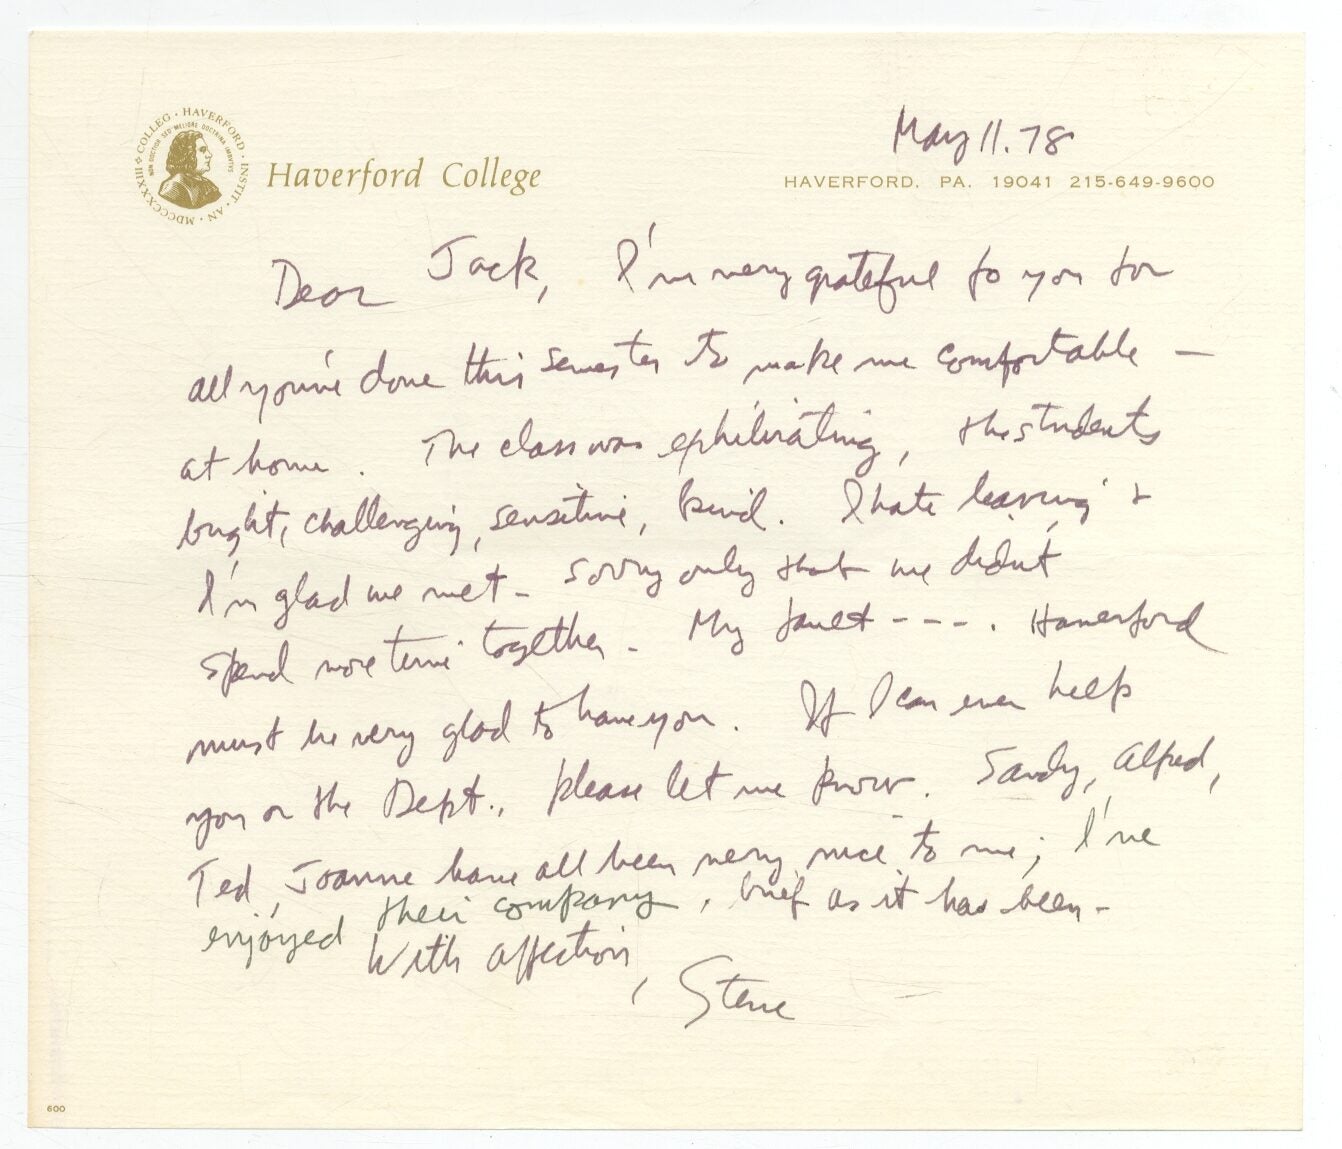 COLLEG · HAVERFORD · INSTIT · AN · MDCCCXXXIII
NON DOCTIOR SED MELIORE DOCTRINA IMBUTUS
Haverford College
May 11. 78
HAVERFORD, PA. 19041 215-649-9600
Dear Jack, I'm very grateful to you for
all you've done this semester to make me comfortable –
at home. The class was exhilirating, the students
bright, challenging, sensitive, kind. I hate leaving &
I'm glad we met – sorry only that we didn't
spend more time together – My fault - - - - . Haverford
must be very glad to have you. If I can ever help
you or the Dept., please let me know. Sandy, Alfred,
Ted, Joanne have all been very nice to me; I've
enjoyed their company, brief as it has been –
With affection,
Steve
600